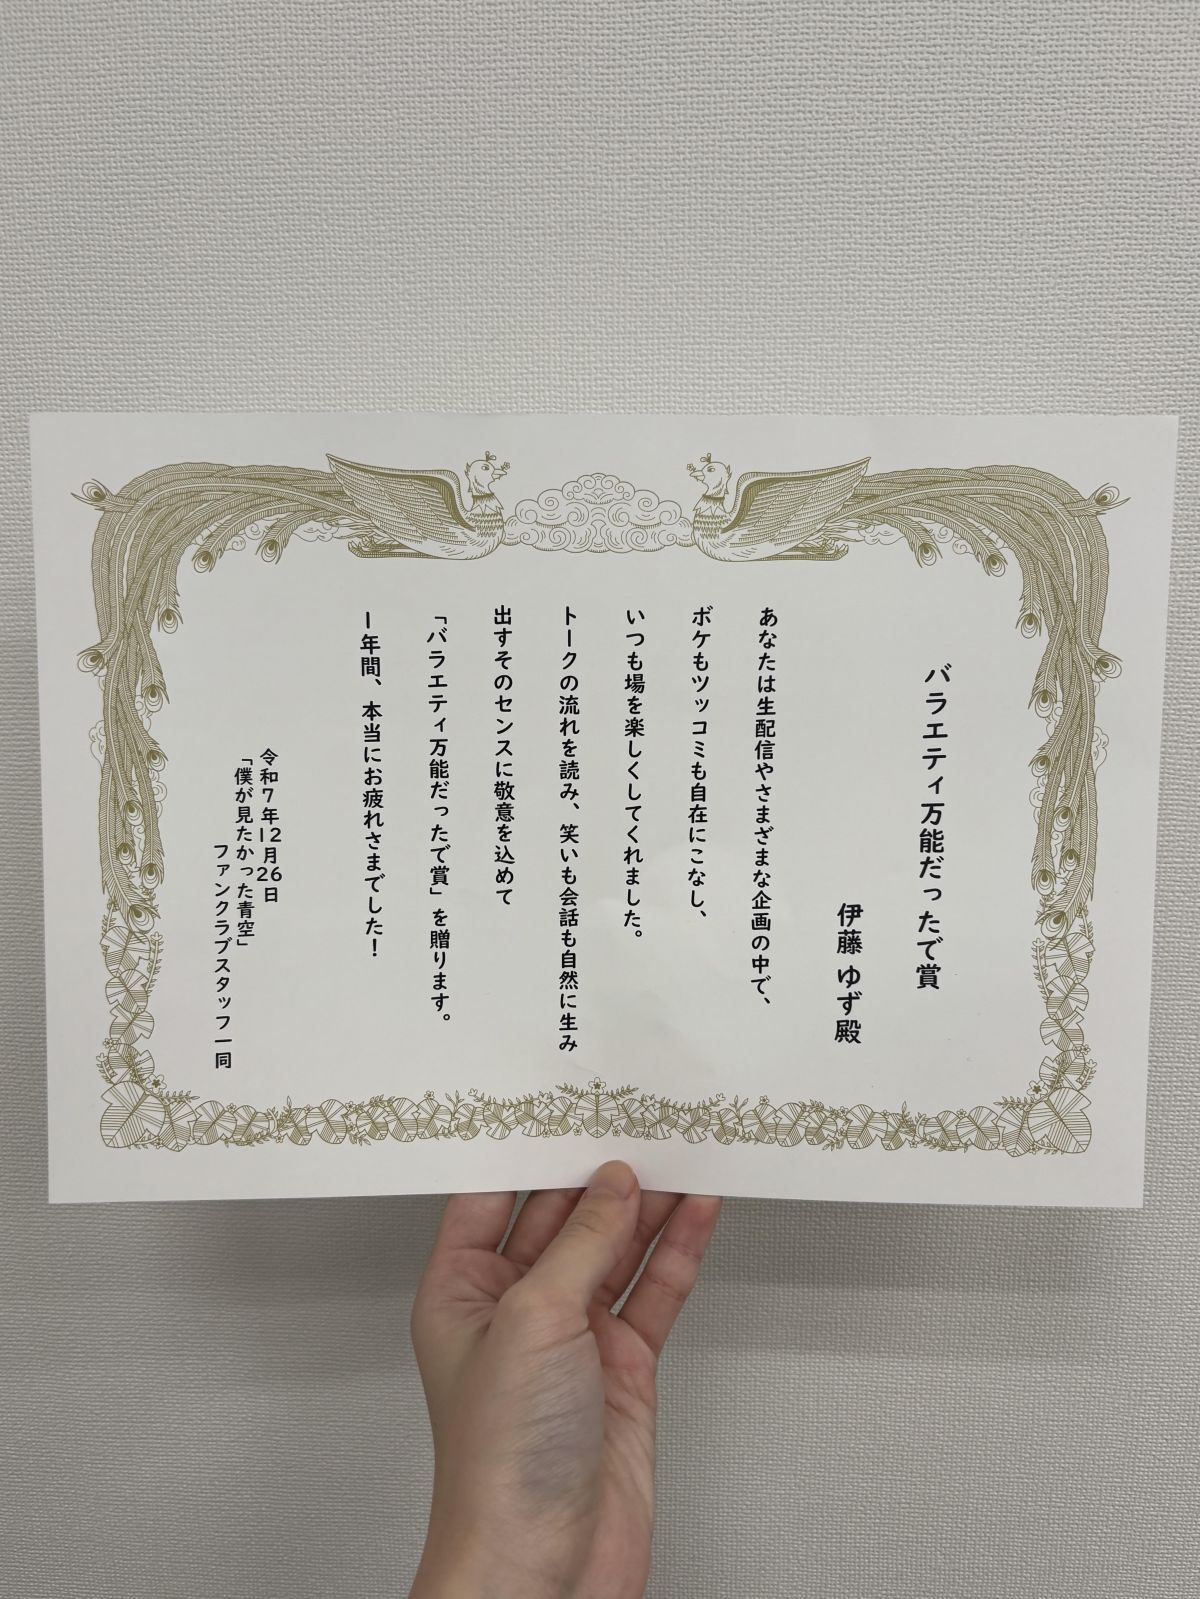 バラエティ万能だったで賞
伊藤 ゆず殿
あなたは生配信やさまざまな企画の中で、
ボケもツッコミも自在にこなし、
いつも場を楽しくしてくれました。
トークの流れを読み、笑いも会話も自然に生み
出すそのセンスに敬意を込めて
「バラエティ万能だったで賞」を贈ります。
1年間、本当にお疲れさまでした!
令和7年12月26日
「僕が見たかった青空」
ファンクラブスタッフ一同